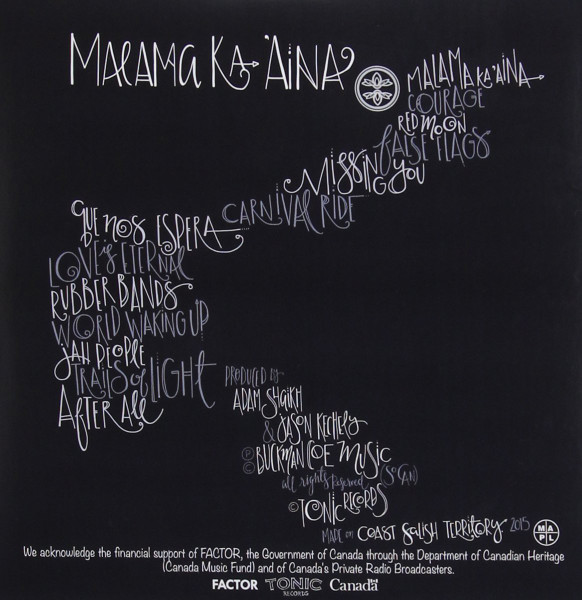 MALAMA KA 'AINA
MALAMA KA 'AINA
COURAGE
RED MOON
FALSE FLAGS
MISSING YOU
CARNIVAL RIDE
QUE NOS ESPERA
LOVE is ETERNAL
RUBBER BANDS
WORLD WAKING UP
JAH PEOPLE
TRAILS of LIGHT
AFTER All
PRODUCED BY
ADAM SHAIKH
& JASON KECHELY
℗ © BUCKMAN COE MUSIC
all rights reserved (SOCAN)
© TONIC RECORDS
MADE ON COAST SALISH TERRITORY 2015
MAPL
We acknowledge the financial support of FACTOR, the Government of Canada through the Department of Canadian Heritage
(Canada Music Fund) and of Canada's Private Radio Broadcasters.
FACTOR TONIC RECORDS Canada